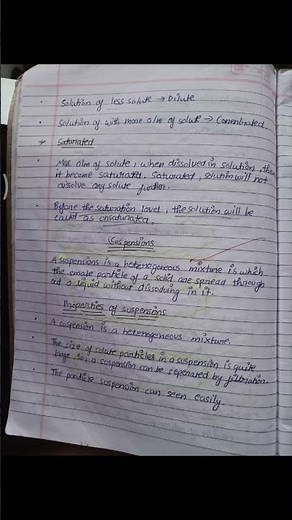 • Solution of less solute → Dilute
• Solution of with more amt of solute → Concentrated
* Saturated
• Max amt of solute, when dissolved in solution, then
it become saturated. Saturated, solution will not
dissolve any solute further.
• Before the saturation level, the solution will be
called as unsaturated.
Suspensions
A suspensions is a heterogeneous mixture is which
the small particle of a solid are spread through
out a liquid without dissolving in it.
Properties of suspensions
• A suspension is a heterogeneous mixture.
• The size of solute particles in a suspension is quite
large. So, a suspension can be seperated by filtration.
• The particle suspension can seen easily.